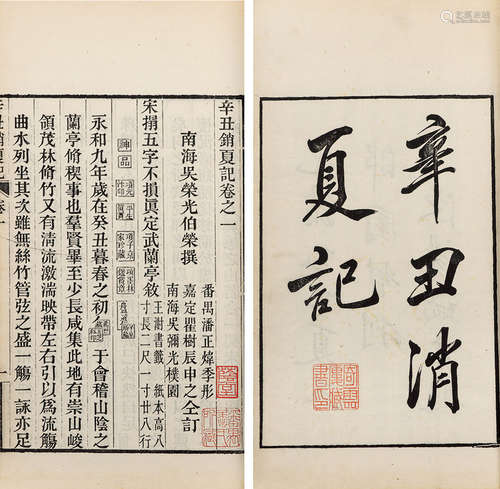 辛丑消
夏記
辛丑銷夏記卷之一
南海吳榮光伯榮撰
番禺潘正煒季彤
嘉定瞿樹辰申之仝訂
南海吳彌光樸園
宋搨五字不損真定武蘭亭敘
王澍書籤 紙本高八
寸長二尺一寸廿八行
神品
項子京
家珍藏
永和九年歲在癸丑暮春之初 于會稽山陰之
蘭亭脩稧事也羣賢畢至少長咸集此地有崇山峻
領茂林脩竹又有清流激湍暎帶左右引以為流觴
曲水列坐其次雖無絲竹管弦之盛一觴一詠亦足
辛丑銷夏記 卷一 一